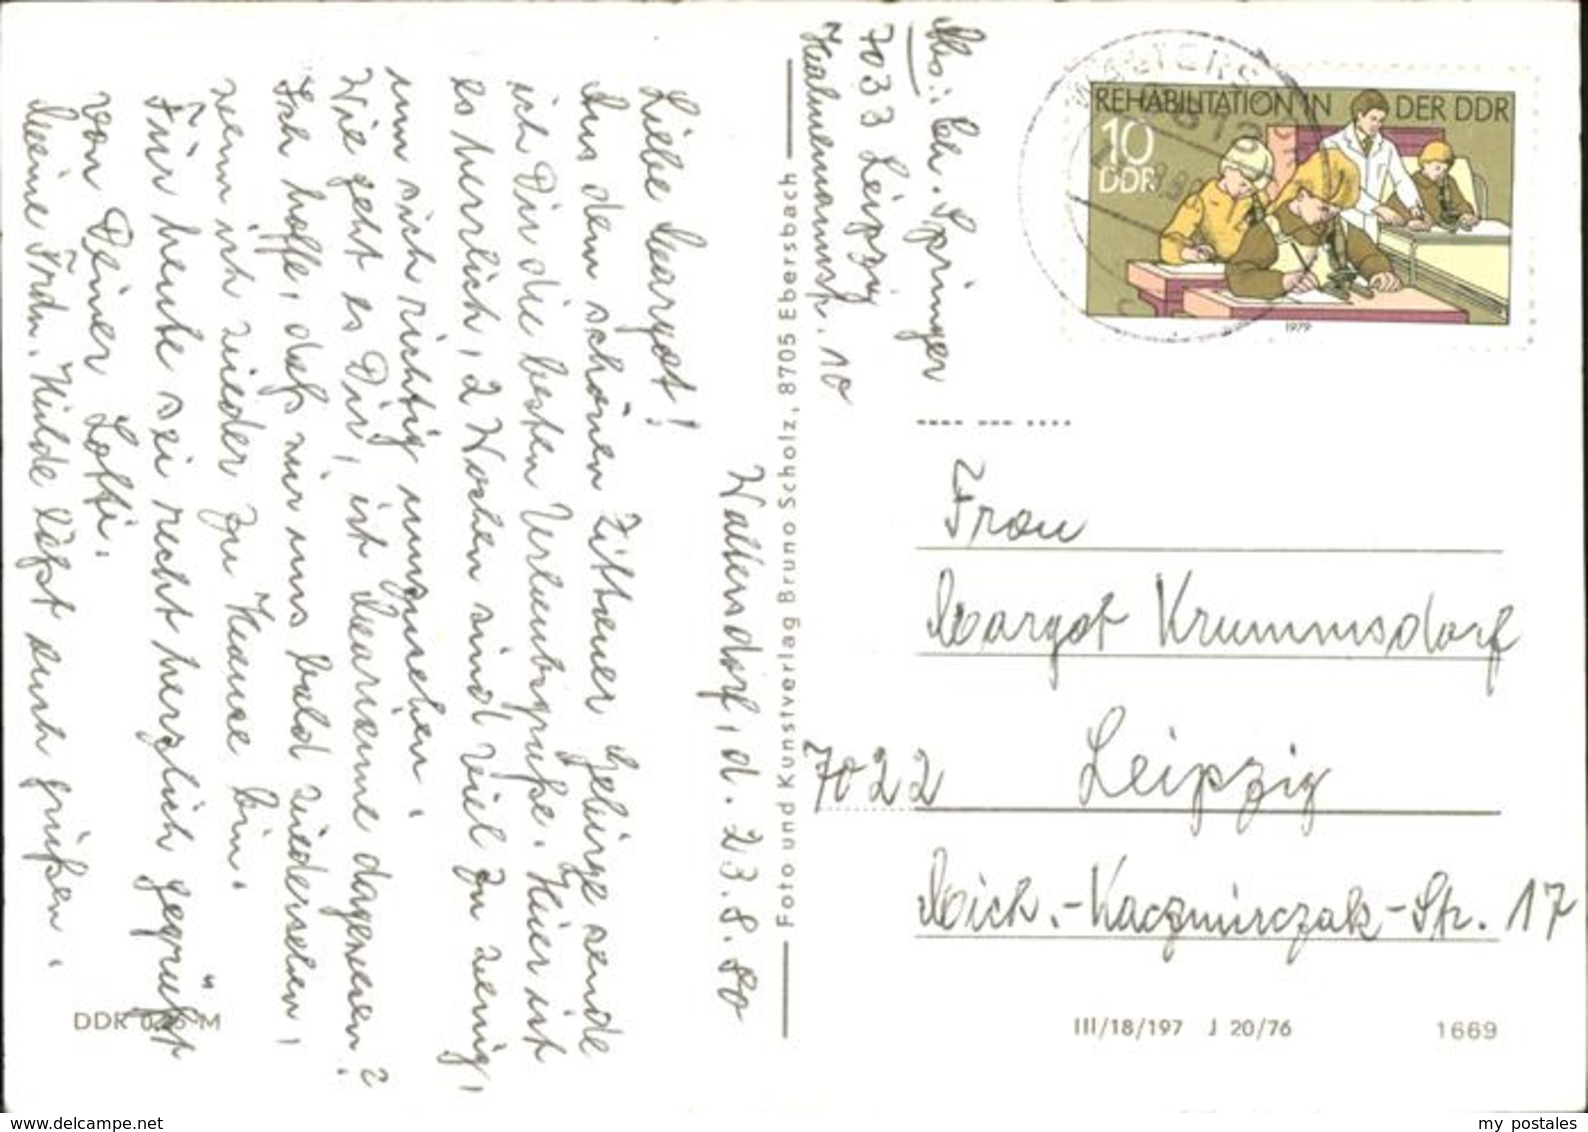 Waltersdorf, d. 23.8.80
Liebe Margot!
Aus dem schönen Zittauer Gebirge sende
ich Dir die besten Urlaubsgrüße. Hier ist
es herrlich, 2 Wochen sind viel zu wenig,
um sich richtig umzusehen.
Wie geht es Dir, ist Marianne dagewesen?
Ich hoffe, daß wir uns bald wiedersehen,
wenn ich wieder zu Hause bin.
Für heute sei recht herzlich gegrüßt
von Deiner Lotti.
Meine Frdn. Hilde läßt auch grüßen.
DDR 0,25 M
Foto und Kunstverlag Bruno Scholz, 8705 Ebersbach
Abs.: Ch. Springer
7033 Leipzig
Hahnemannstr. 10
REHABILITATION IN DER DDR
10
DDR
1979
Frau
Margot Krummsdorf
7022 Leipzig
Mich.-Kaczmirczak-Str. 17
III/18/197 J 20/76
1669
delcampe.net
my_postales